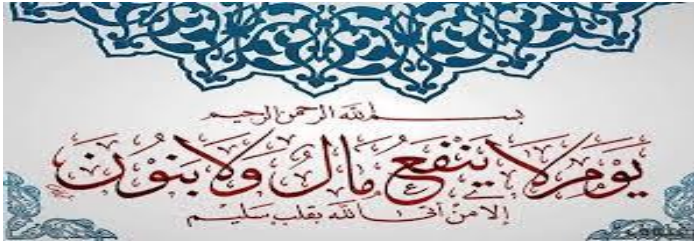 بسم الله الرحمن الرحيم
يَوْمَ لَا يَنْفَعُ مَالٌ وَلَا بَنُونَ
إلا من أتى الله بقلب سليم